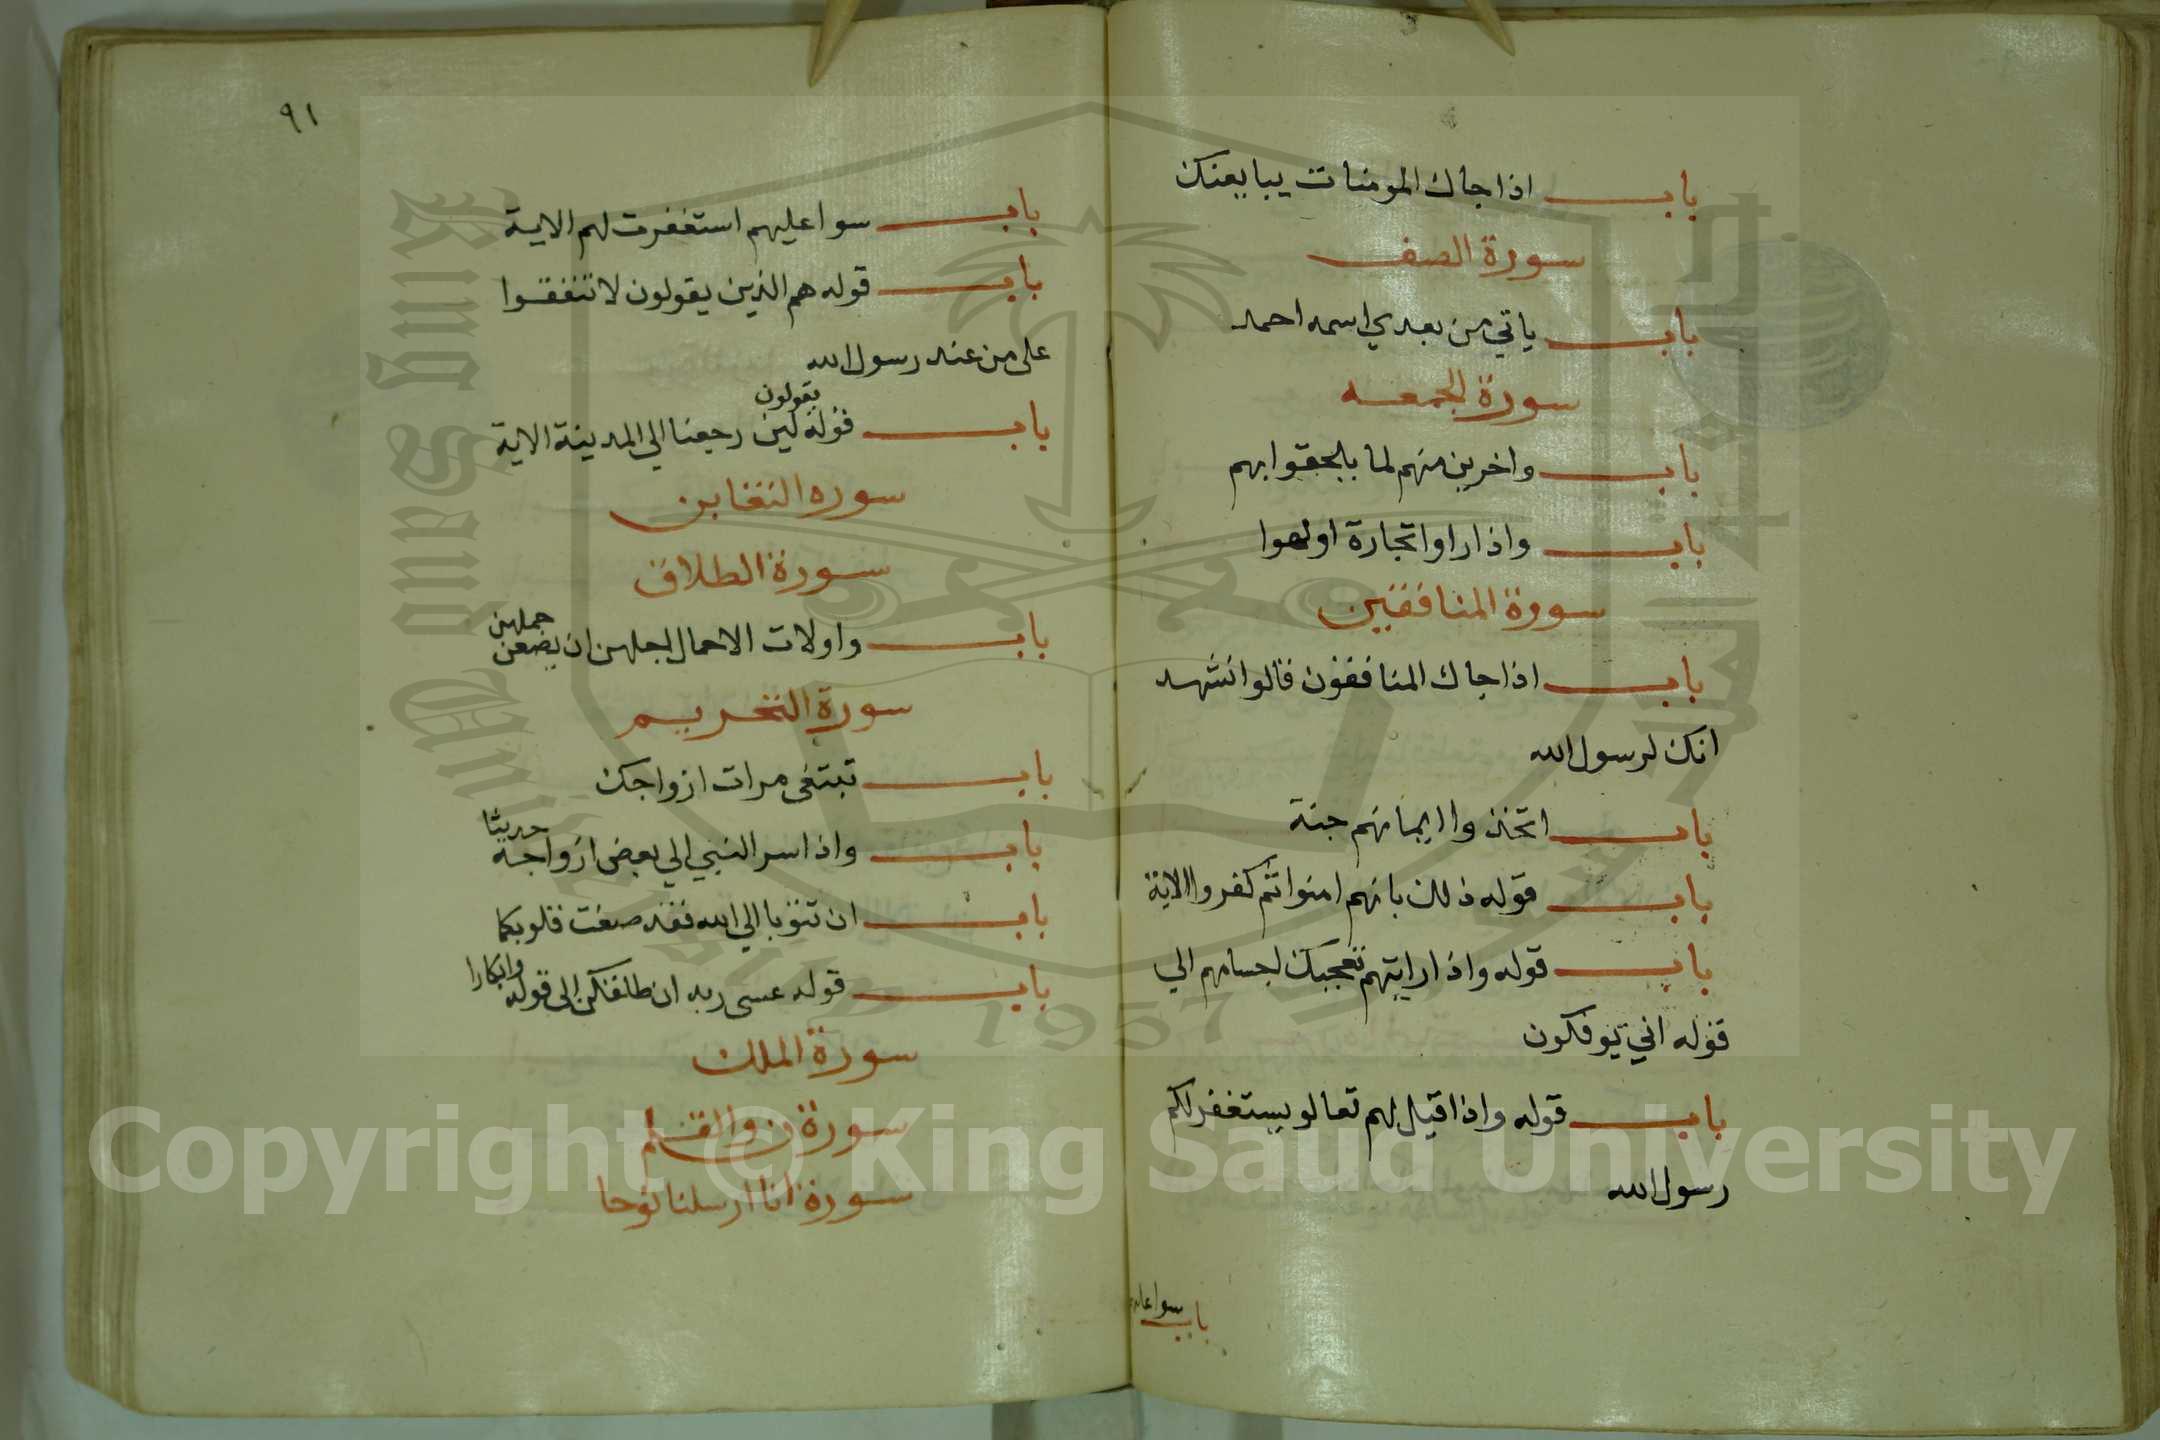 باب اذا جاك المومنات يبايعنك
سورة الصف
باب ياتي من بعدي اسمه احمد
سورة الجمعه
باب واخرين منهم لما يلحقوا بهم
باب واذا راوا تجارة او لهوا
سورة المنافقين
باب اذا جاك المنافقون قالوا نشهد
انك لرسول الله
باب اتخذوا ايمانهم جنة
باب قوله ذلك بانهم امنوا ثم كفروا الاية
باب قوله واذا رايتهم تعجبك اجسامهم الي
قوله اني يوفكون
باب قوله واذا قيل لهم تعالو يستغفر لكم
رسول الله
باب سوا عليهم
٩١
باب سوا عليهم استغفرت لهم الاية
باب قوله هم الذين يقولون لا تنفقوا
على من عند رسول الله
باب قوله يقولون لين رجعنا الي المدينة الاية
سوره التغابن
سورة الطلاق
باب واولات الاحمال اجلهن ان يضعن حملهن
سورة التحريم
باب تبتغى مرات ازواجك
باب واذ اسر النبي الي بعض ازواجه حديثا
باب ان تتوبا الي الله فقد صغت قلوبكما
باب قوله عسى ربه ان طلقكن الى قوله وابكارا
سورة الملك
سورة ن والقلم
سورة انا ارسلنا نوحا
King Saud University
1957
Copyright © King Saud University